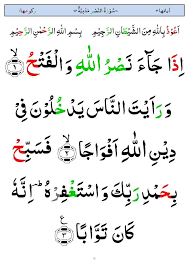 سُوْرَةُ النَّصْرِ مَدَنِيَّةٌ
اَعُوْذُ بِاللّٰهِ مِنَ الشَّيْطٰنِ الرَّجِيْمِ بِسْمِ اللّٰهِ الرَّحْمٰنِ الرَّحِيْمِ
اِذَا جَآءَ نَصْرُ اللّٰهِ وَالْفَتْحُ ۝١
وَرَاَيْتَ النَّاسَ يَدْخُلُوْنَ فِيْ
دِيْنِ اللّٰهِ اَفْوَاجًا ۝٢ فَسَبِّحْ
بِحَمْدِ رَبِّكَ وَاسْتَغْفِرْهُ ؕ اِنَّهٗ
كَانَ تَوَّابًا ۝٣ ع